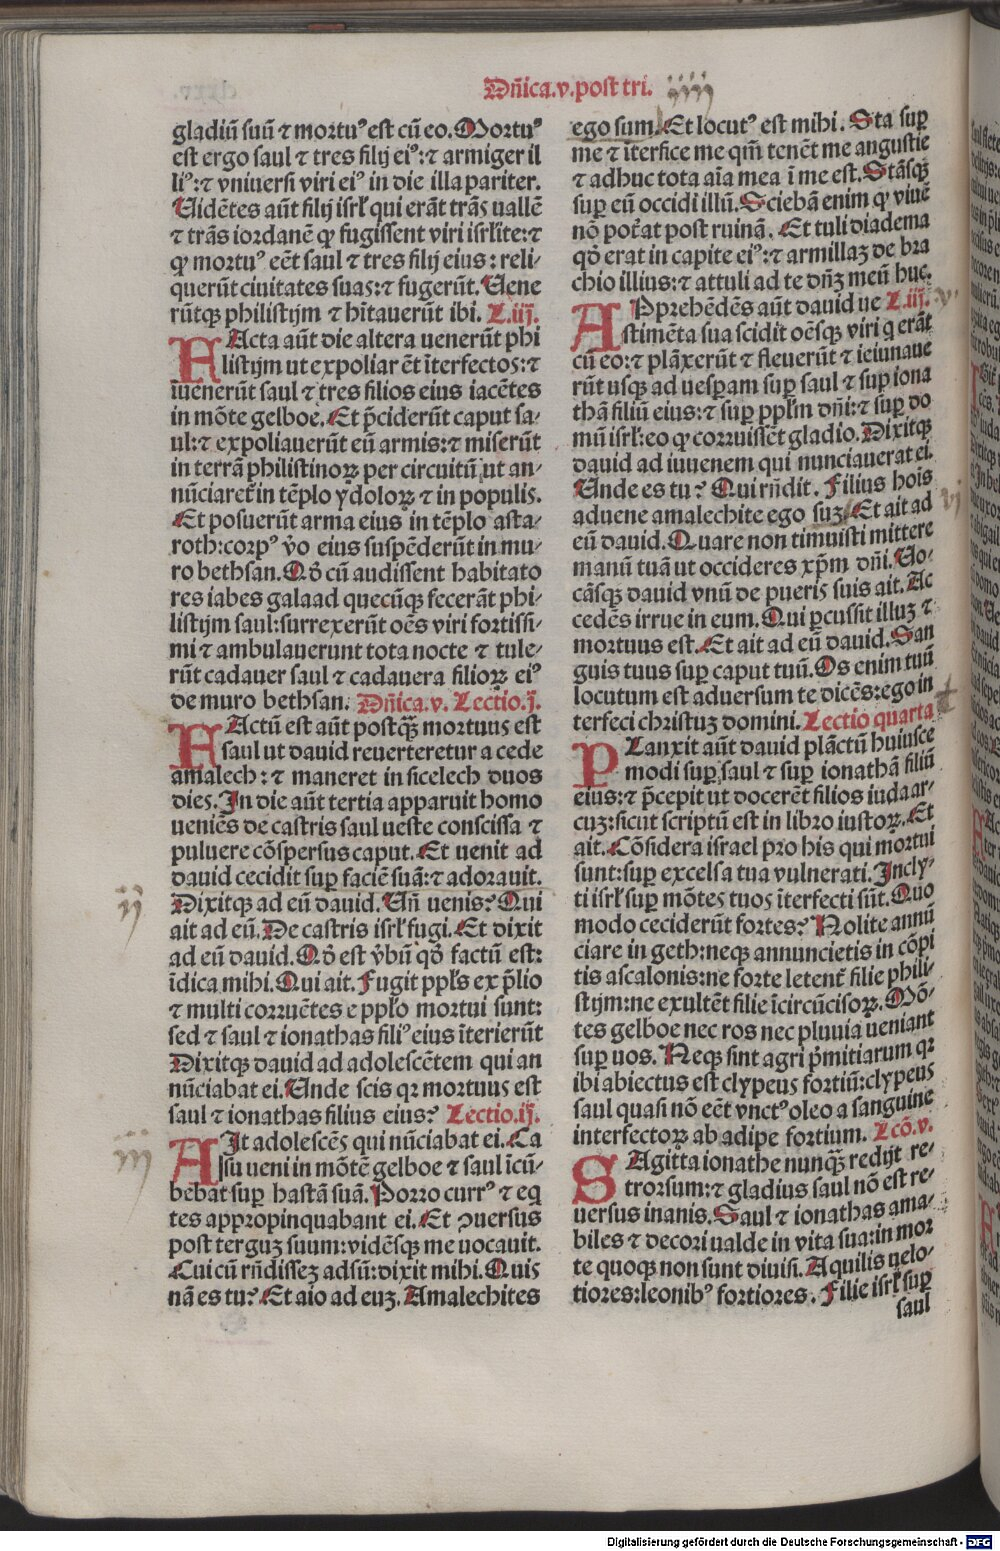 Dn̄ica.v.post tri.
iiii
gladiū suū ⁊ mortuꝰ est cū eo. Mortuꝰ
est ergo saul ⁊ tres filij eiꝰ:⁊ armiger il
liꝰ:⁊ vniuersi viri eiꝰ in die illa pariter.
Uidētes aūt filij isrl̓ qui erāt trās uallē
⁊ trās iordanē ꝙ fugissent viri isrl̓ite:⁊
ꝙ mortuꝰ eēt saul ⁊ tres filij eius: reli-
querūt ciuitates suas:⁊ fugerūt. Uene
rūtqꝫ philistijm ⁊ hītauerūt ibi. L.iij.
FActa aūt die altera uenerūt phi
listijm ut expoliarēt īterfectos:⁊
īuenerūt saul ⁊ tres filios eius iacētes
in mōte gelboe. Et p̄ciderūt caput sa-
ul:⁊ expoliauerūt eū armis:⁊ miserūt
in terrā philistinoꝝ per circuitū ut an-
nūciaret̄ in tēplo ydoloꝝ ⁊ in populis.
Et posuerūt arma eius in tēplo asta-
roth:corpꝰ v̓o eius suspēderūt in mu-
ro bethsan. Qd̓ cū audissent habitato
res iabes galaad quecūqꝫ fecerāt phi-
listijm saul:surrexerūt oēs viri fortissi-
mi ⁊ ambulauerunt tota nocte ⁊ tule-
rūt cadauer saul ⁊ cadauera filioꝝ eiꝰ
de muro bethsan. Dn̄ica.v. Lectio.j.
FActū est aūt postqꝫ̄ mortuus est
saul ut dauid reuerteretur a cede
amalech:⁊ maneret in sicelech duos
dies. In die aūt tertia apparuit homo
ueniēs de castris saul ueste conscissa ⁊
puluere cōspersus caput. Et uenit ad
dauid cecidit suꝑ faciē suā:⁊ adorauit.
ii
Dixitqꝫ ad eū dauid. Un̄ uenis? Qui
ait ad eū. De castris isrl̓ fugi. Et dixit
ad eū dauid. Qd̓ est v̓bū qd̓ factū est:
īdica mihi. Qui ait. Fugit ppl̓s ex p̄lio
⁊ multi corruētes e ppl̓o mortui sunt:
sed ⁊ saul ⁊ ionathas filiꝰ eius īterierūt
Dixitqꝫ dauid ad adolescētem qui an
nūciabat ei. Unde scis qꝛ mortuus est
saul ⁊ ionathas filius eius? Lectio.ij.
iii
AIt adolescēs qui nūciabat ei. Ca
su ueni in mōtē gelboe ⁊ saul īcū-
bebat suꝑ hastā suā. Porro currꝰ ⁊ eq
tes appropinquabant ei. Et ꝯuersus
post terguꝫ suum:vidēsqꝫ me uocauit.
Cui cū rn̄disseꝫ adsū:dixit mihi. Quis
nā es tu? Et aio ad euꝫ. Amalechites
ego sum. Et locutꝰ est mihi. Sta suꝑ
me ⁊ īterfice me qm̄ tenēt me angustie
⁊ adhuc tota aīa mea ī me est. Stāsqꝫ
suꝑ eū occidi illū. Sciebā enim ꝙ viuē
nō pot̓at post ruinā. Et tuli diadema
qd̓ erat in capite eiꝰ:⁊ armillaꝫ de bra
chio illius:⁊ attuli ad te dn̄ꝫ meū huc.
APprehēdēs aūt dauid ue L.iij.
v
stimēta sua scidit oēsqꝫ viri q erāt
cū eo:⁊ plāxerūt ⁊ fleuerūt ⁊ ieiunaue
rūt usqꝫ ad uesꝑam suꝑ saul ⁊ suꝑ iona
thā filiū eius:⁊ suꝑ ppl̓m dn̄i:⁊ suꝑ do
mū isrl̓:eo ꝙ corruissēt gladio. Dixitqꝫ
dauid ad iuuenem qui nunciauerat ei.
Unde es tu? Qui rn̄dit. Filius hoīs
aduene amalechite ego suꝫ. Et ait ad
vi
eū dauid. Quare non timuisti mittere
manū tuā ut occideres xp̄m dn̄i. Uo-
cāsqꝫ dauid vnū de pueris suis ait. Ac
cedēs irrue in eum. Qui ꝑcussit illuꝫ ⁊
mortuus est. Et ait ad eū dauid. San
guis tuus suꝑ caput tuū. Os enim tuū
locutum est aduersum te dicēs:ego in
terfeci christuꝫ domini. Lectio quarta
PLanxit aūt dauid plāctū huiusce
modi suꝑ saul ⁊ suꝑ ionathā filiū
eius:⁊ p̄cepit ut docerēt filios iuda ar-
cuꝫ:sicut scriptū est in libro iustoꝝ. Et
ait. Cōsidera israel pro his qui mortui
sunt:suꝑ excelsa tua vulnerati. Incly-
ti isrl̓ suꝑ mōtes tuos īterfecti sūt. Quo
modo ceciderūt fortes? Nolite annū
ciare in geth:neqꝫ annuncietis in cōpi
tis ascalonis:ne forte letent̄ filie phili-
stijm:ne exultēt filie īcircūcisoꝝ. Mō-
tes gelboe nec ros nec pluuia ueniant
suꝑ uos. Neqꝫ sint agri p̓mitiarum qꝛ
ibi abiectus est clypeus fortiū:clypeus
saul quasi nō eēt vnctꝰ oleo a sanguine
interfectoꝝ ab adipe fortium. Lcō.v.
SAgitta ionathe nunqꝫ̄ redijt re-
trorsum:⁊ gladius saul nō est re-
uersus inanis. Saul ⁊ ionathas ama-
biles ⁊ decori ualde in vita sua:in mor
te quoqꝫ non sunt diuisi. Aquilis uelo-
tiores:leonibꝰ fortiores. Filie isrl̓ suꝑ
saul
Digitalisierung gefördert durch die Deutsche Forschungsgemeinschaft - DFG